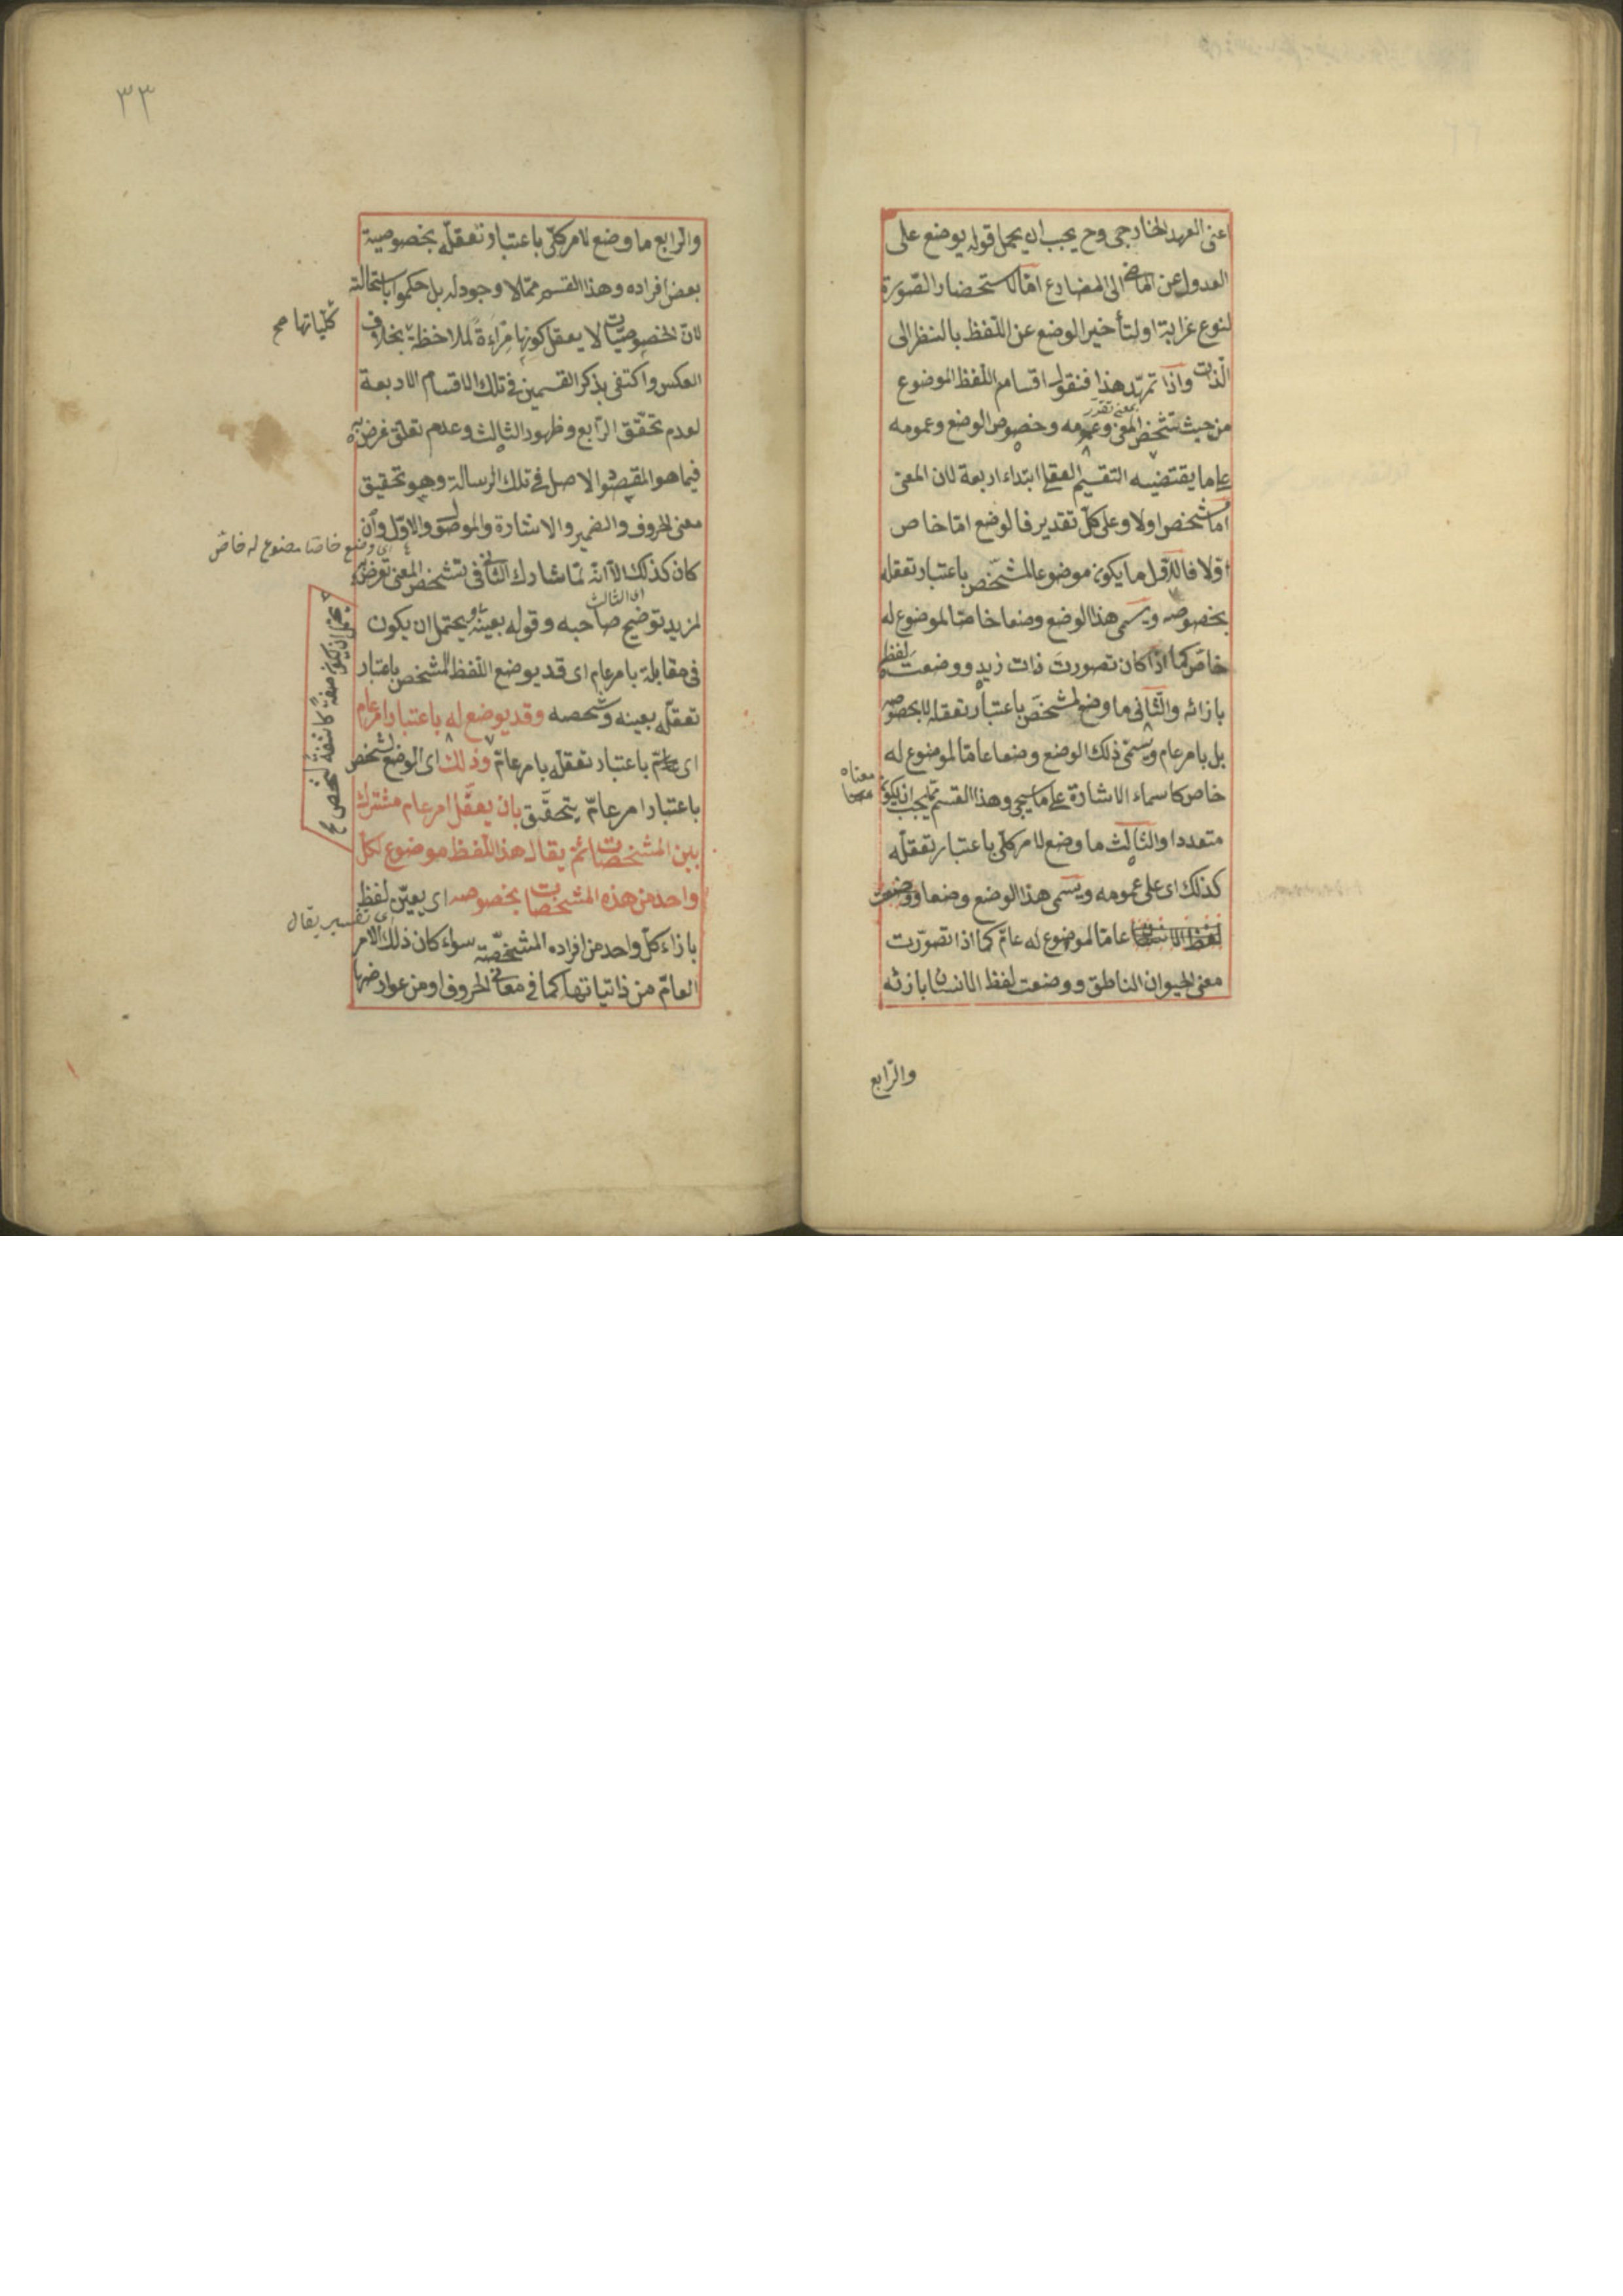 اعنى العهد الخارجى وح يجب ان يحمل قوله يوضع على
العدول عن الماضى الى المضارع امّا لاستحضار الصّورة
لنوع غرابة او لتأخير الوضع عن اللفظ بالنظر الى
الذات واذا تمهّد هذا فنقول اقسام اللفظ الموضوع
من حيث تشخص المعنى وعمومه وخصوص الوضع وعمومه
على ما يقتضيه التقسيم العقلى ابتداء اربعة لان المعنى
امّا مشخص اولا وعلى كلّ تقدير فالوضع امّا خاص
اولا فالاوّل ما يكون موضوعا لمشخّص باعتبار تعقله
بخصوصه ويسمى هذا الوضع وضعا خاصّا لموضوع له
خاصّ كما اذا كان تصورت ذات زيد ووضعت لفظه
بازائه والثّانى ما وضع لمشخّص باعتبار تعقله لا بخصوصه
بل بامر عام ويسمّى ذلك الوضع وضعا عامّا لموضوع له
خاص كاسماء الاشارة على ما سيجى وهذا القسم مما يجب ان يكون
معناه
متعددا والثّالث ما وضع لامر كلّى باعتبار تعقلّه
كذلك اى على عمومه ويسمى هذا الوضع وضعا
عامّا لموضوع له عامّ كما اذا تصوّرت
معنى الحيوان الناطق ووضعت لفظ الانسان بازائه
والرّابع
٣٣
والرّابع ما وضع لامر كلّى باعتبار تعقلّه بخصوصية
بعض افراده وهذا القسم ممّا لا وجود له بل حكموا باستحالته
لانّ الخصوصيّات لا يعقل كونها مراءةً لملاحظة بخلاف
كلّياتها صح
العكس واكتفى بذكر القسمين فى تلك الاقسام الاربعة
لعدم تحقّق الرّابع وظهور الثالث وعدم تعلق غرض به
فيما هو المقصود الاصل فى تلك الرسالة وهو تحقيق
معنى الحروف والضمير والاشارة والموصول والاوّل وان
اى وضع خاصّا موضوع له خاصّ
كان كذلك الّا انّه لمّا شارك الثّانى فى تشخص المعنى تعرّض له
اى الثالث
لمزيد توضيح صاحبه وقوله بعينه يحتمل ان يكون
فى مقابلة بامر عام اى قد يوضع اللفظ لمشخص باعتبار
تعقلّه بعينه وشخصه وقد يوضع له باعتبار امر عام
اى باعتبار تعقلّه بامر عامّ وذلك اى الوضع لشخص
باعتبار امر عامّ يتحقّق بان يعقّل امر عام مشترك
بين المشخصات ثم يقال هذا اللّفظ موضوع لكلّ
واحد من هذه المشخصات بخصوصه اى يعيّن لفظ
اى تفسير يقال
بازاء كلّ واحد من افراده المشخّصة سواء كان ذلك الامر
العامّ من ذاتياتها كما فى معانى الحروف او من عوارضها
يحتمل ان يكون صفةً كاشفةً لشخص